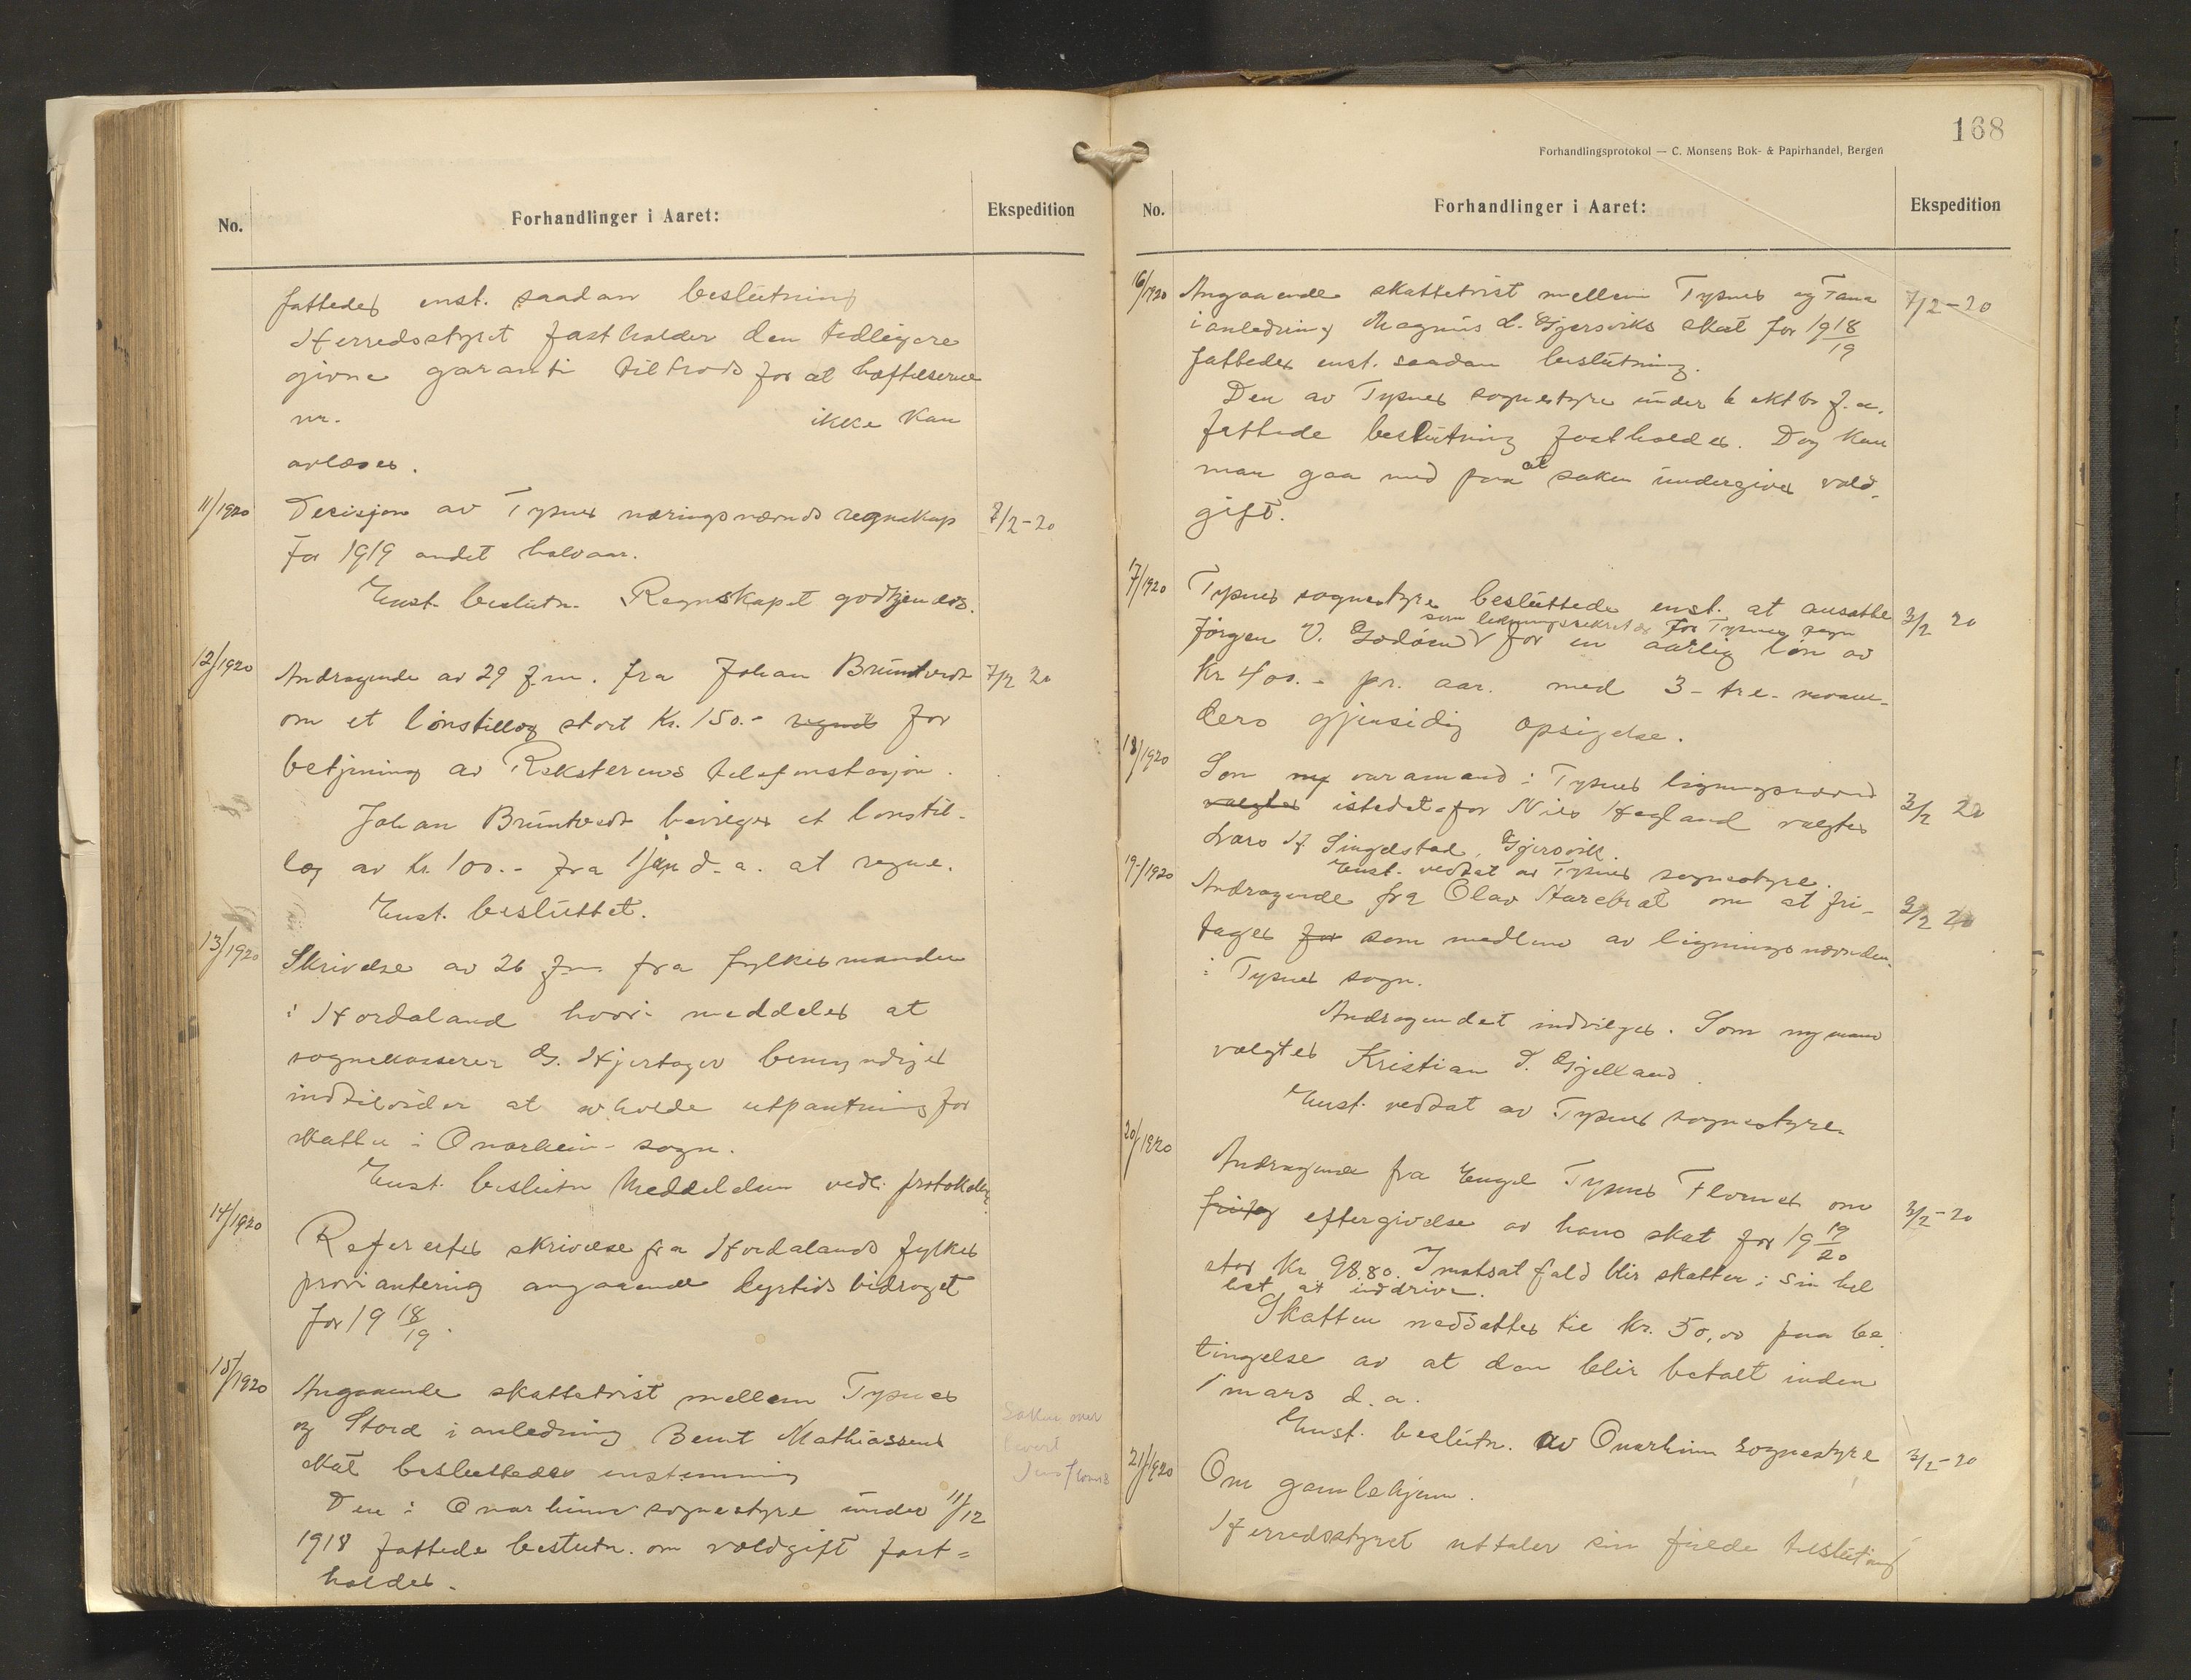 No.
Forhandlinger i Aaret:
Ekspedition
fattedes enst. saadan beslutning
Herredsstyret fastholder den tidligere
givne garanti tiltrods for at hæftelserne
nr. ikke kan
avlæses.
11/1920 Decisjon av Tysnes næringsnævnds regnskap 7/2-20
for 1919 andet halvaar.
Enst. beslutn. Regnskapet godkjendes.
12/1920 Andragende av 29 f.m. fra Johan Brüntvedt 7/2 20
om et lønstillæg stort Kr. 150.- regnet for
betjening av Reksterens telefonstasjon.
Johan Brüntvedt bevilges et lønstil-
læg av Kr. 100.- fra 1 jan d.a. at regne.
Enst. besluttet.
13/1920 Skrivelse av 26 f.m. fra fylkesmanden
i Hordaland hvori meddeles at
sognekasserer G. Hjertager bemyndiges
indtilvider at avholde utpantning for
skatter i Onarheim sogn.
Enst. beslutn Meddelelsen vedl. protokollen.
14/1920 Refereres skrivelse fra Hordalands fylkes
proviantering angaaende dyrtidsbidraget
for 19 18/19.
15/1920 Angaaende skattetvist mellem Tysnes
og Stord i anledning Bernt Mathiassens
skat besluttedes enstemmig
Den i Onarheim sognestyre under 11/12
1918 fattede beslutn. om voldgift fast=
holdes.
Saken over
levert
168
Forhandlingsprotokol — C. Monsens Bok- & Papirhandel, Bergen
No.
Forhandlinger i Aaret:
Ekspedition
16/1920 Angaaende skattetvist mellem Tysnes og Fana 7/2-20
i anledning Magnus L. Gjersviks skat for 1918/19
fattedes enst. saadan beslutning.
Den av Tysnes sognestyre under 6 oktbr f.a.
fattede beslutning fastholdes. Dog kan
man gaa med paa at saken undergives vold-
gift.
17/1920 Tysnes sognestyre besluttede enst. at ansætte 3/2 20
som ligningssekretær for Tysnes sogn
Jørgen V. Godøsund for en aarlig løn av
Kr 400.- pr. aar. med 3-tre-maane-
ders gjensidig opsigelse.
18/1920 Som ny varamand i Tysnes ligningsnævnd 3/2 20
valgtes istedetfor Nils Hegland valgtes
Lars H. Singelstad, Gjersvik.
Enst. vedtat av Tysnes sognestyre.
19/1920 Andragende fra Olav Hareback om at fri- 3/2 20
tages for som medlem av ligningsnævnden
i Tysnes sogn.
Andragendet indvilges. Som ny mand
valgtes Kristian T. Gjelland.
Enst. vedtat av Tysnes sognestyre.
20/1920 Andragende fra Engel Tysnes Flornes om
fritag eftergivelse av hans skat for 19 19/20 3/2-20
stor Kr. 98.80. I motsat fald blir skatten i sin hel
het at inddrive.
Skatten nedsættes til Kr. 50,00 paa be
tingelse av at den blir betalt inden
1 mars d.a.
Enst. beslutn. av Onarheim sognestyre 3/2-20
21/1920 Om gamlehjem.
Herredsstyret uttaler sin fulde tilslutning